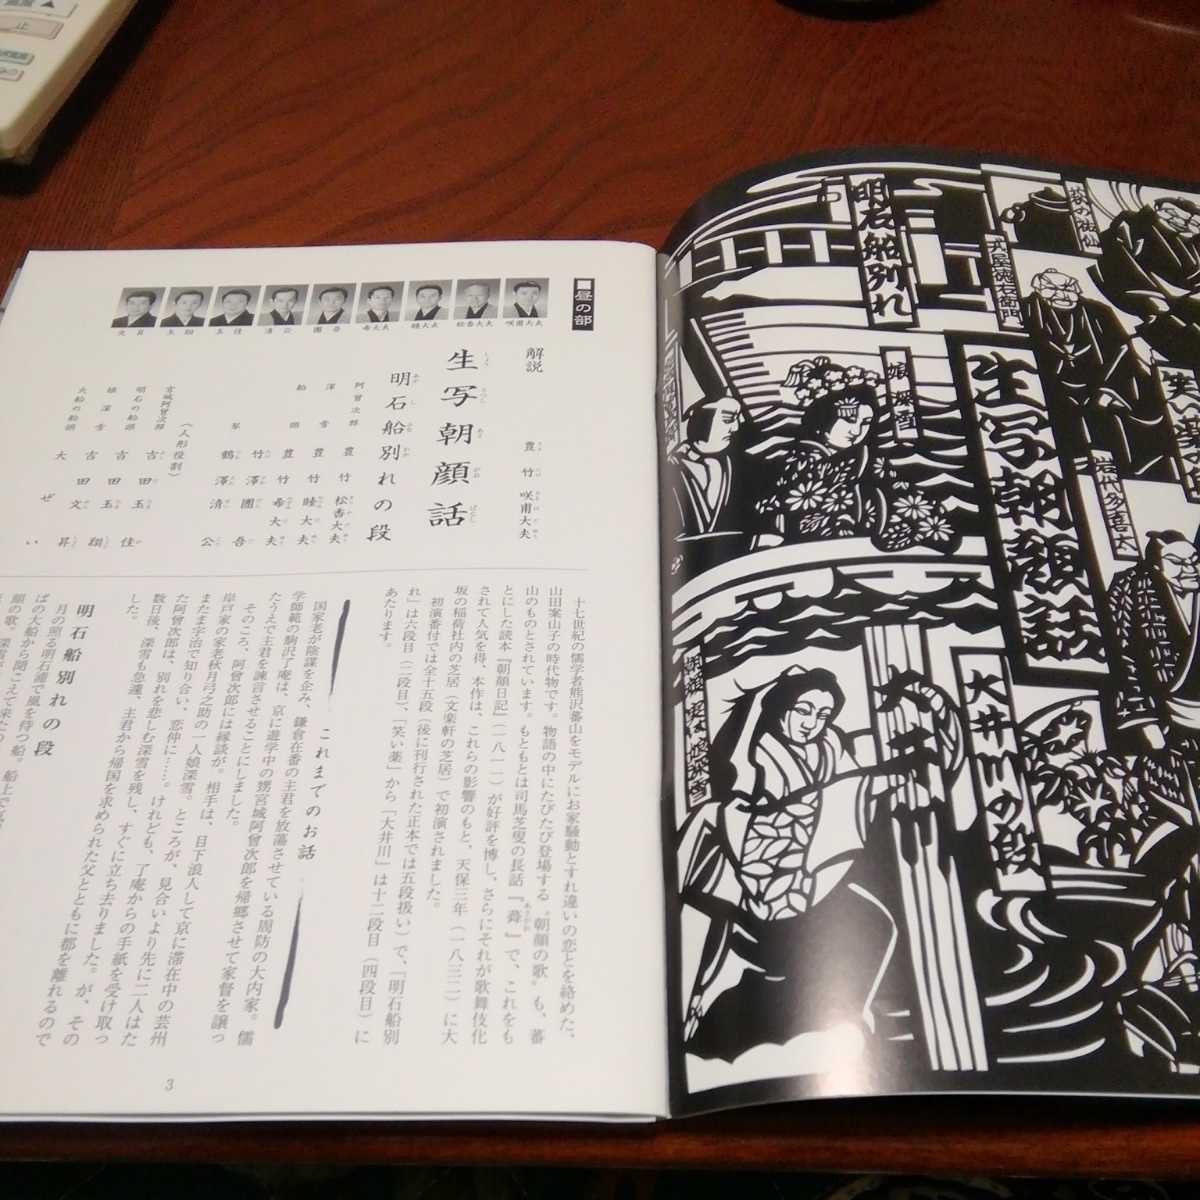 明石船別れ
萩の祐仙
戎屋徳右衛門
笑い薬
娘深雪
生写朝顔話
岩代多喜太
大井川の段
大井川
■昼の部
咲甫大夫
松香大夫
睦大夫
希大夫
團吾
清公
玉佳
玉翔
文昇
解説
豊竹咲甫大夫
生写朝顔話
しょううつしあさがおばなし
明石船別れの段
あかしふなわかれ
阿曾次郎 豊竹松香大夫
深雪 豊竹睦大夫
船頭 豊竹希大夫
竹澤團吾
琴 鶴澤清公
(人形役割)
宮城阿曾次郎 吉田玉佳
明石の船頭 吉田玉翔
娘深雪 吉田文昇
大船の船頭 大ぜい
十七世紀の儒学者熊沢蕃山をモデルにお家騒動とすれ違いの恋とを絡めた、
山田案山子の時代物です。物語の中にたびたび登場する〝朝顔の歌〟も、蕃
山のものとされています。もともとは司馬芝叟の長話『蕣』で、これをも
あさがお
とにした読本『朝顔日記』(一八一一)が好評を博し、さらにそれが歌舞伎化
されて人気を得、本作は、これらの影響のもと、天保三年(一八三二)に大
坂の稲荷社内の芝居(文楽軒の芝居)で初演されました。
初演番付では全十五段(後に刊行された正本では五段扱い)で、「明石船別
れ」は六段目(二段目)、「笑い薬」から「大井川」は十二段目(四段目)に
あたります。
これまでのお話
国家老が陰謀を企み、鎌倉在番の主君を放蕩させている周防の大内家。儒
学師範の駒沢了庵は、京に遊学中の甥宮城阿曾次郎を帰郷させて家督を譲っ
たうえで主君を諫言させることにしました。
そのころ、阿曾次郎には縁談が。相手は、目下浪人して京に滞在中の芸州
岸戸家の家老秋月弓之助の一人娘深雪。ところが、見合いより先に二人はた
またま宇治で知り合い、恋仲に……。けれども、了庵からの手紙を受け取っ
た阿曾次郎は、別れを悲しむ深雪を残し、すぐに立ち去りました。が、その
数日後、深雪も急遽、主君から帰国を求められた父とともに都を離れるので
した。
明石船別れの段
月の照る明石浦で風を待つ船。船上で
ばの大船から聞こえて来た
顔の歌。深雪が
3